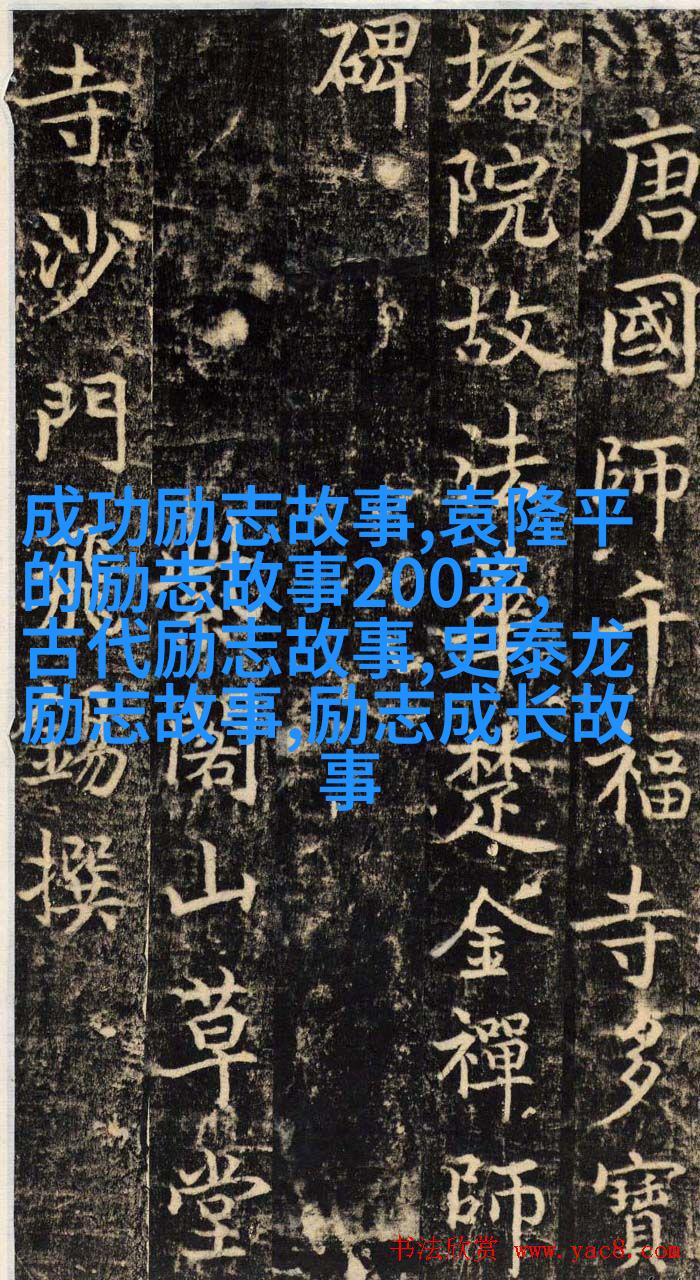 唐國師千福寺多寶
塔院故法華楚金禪師
碑
紫閣山草堂
寺沙門飛錫撰
成功励志故事,袁隆平
的励志故事200字,
古代励志故事,史泰龙
励志故事,励志成长故
事
书法欣赏 www.yac8.com